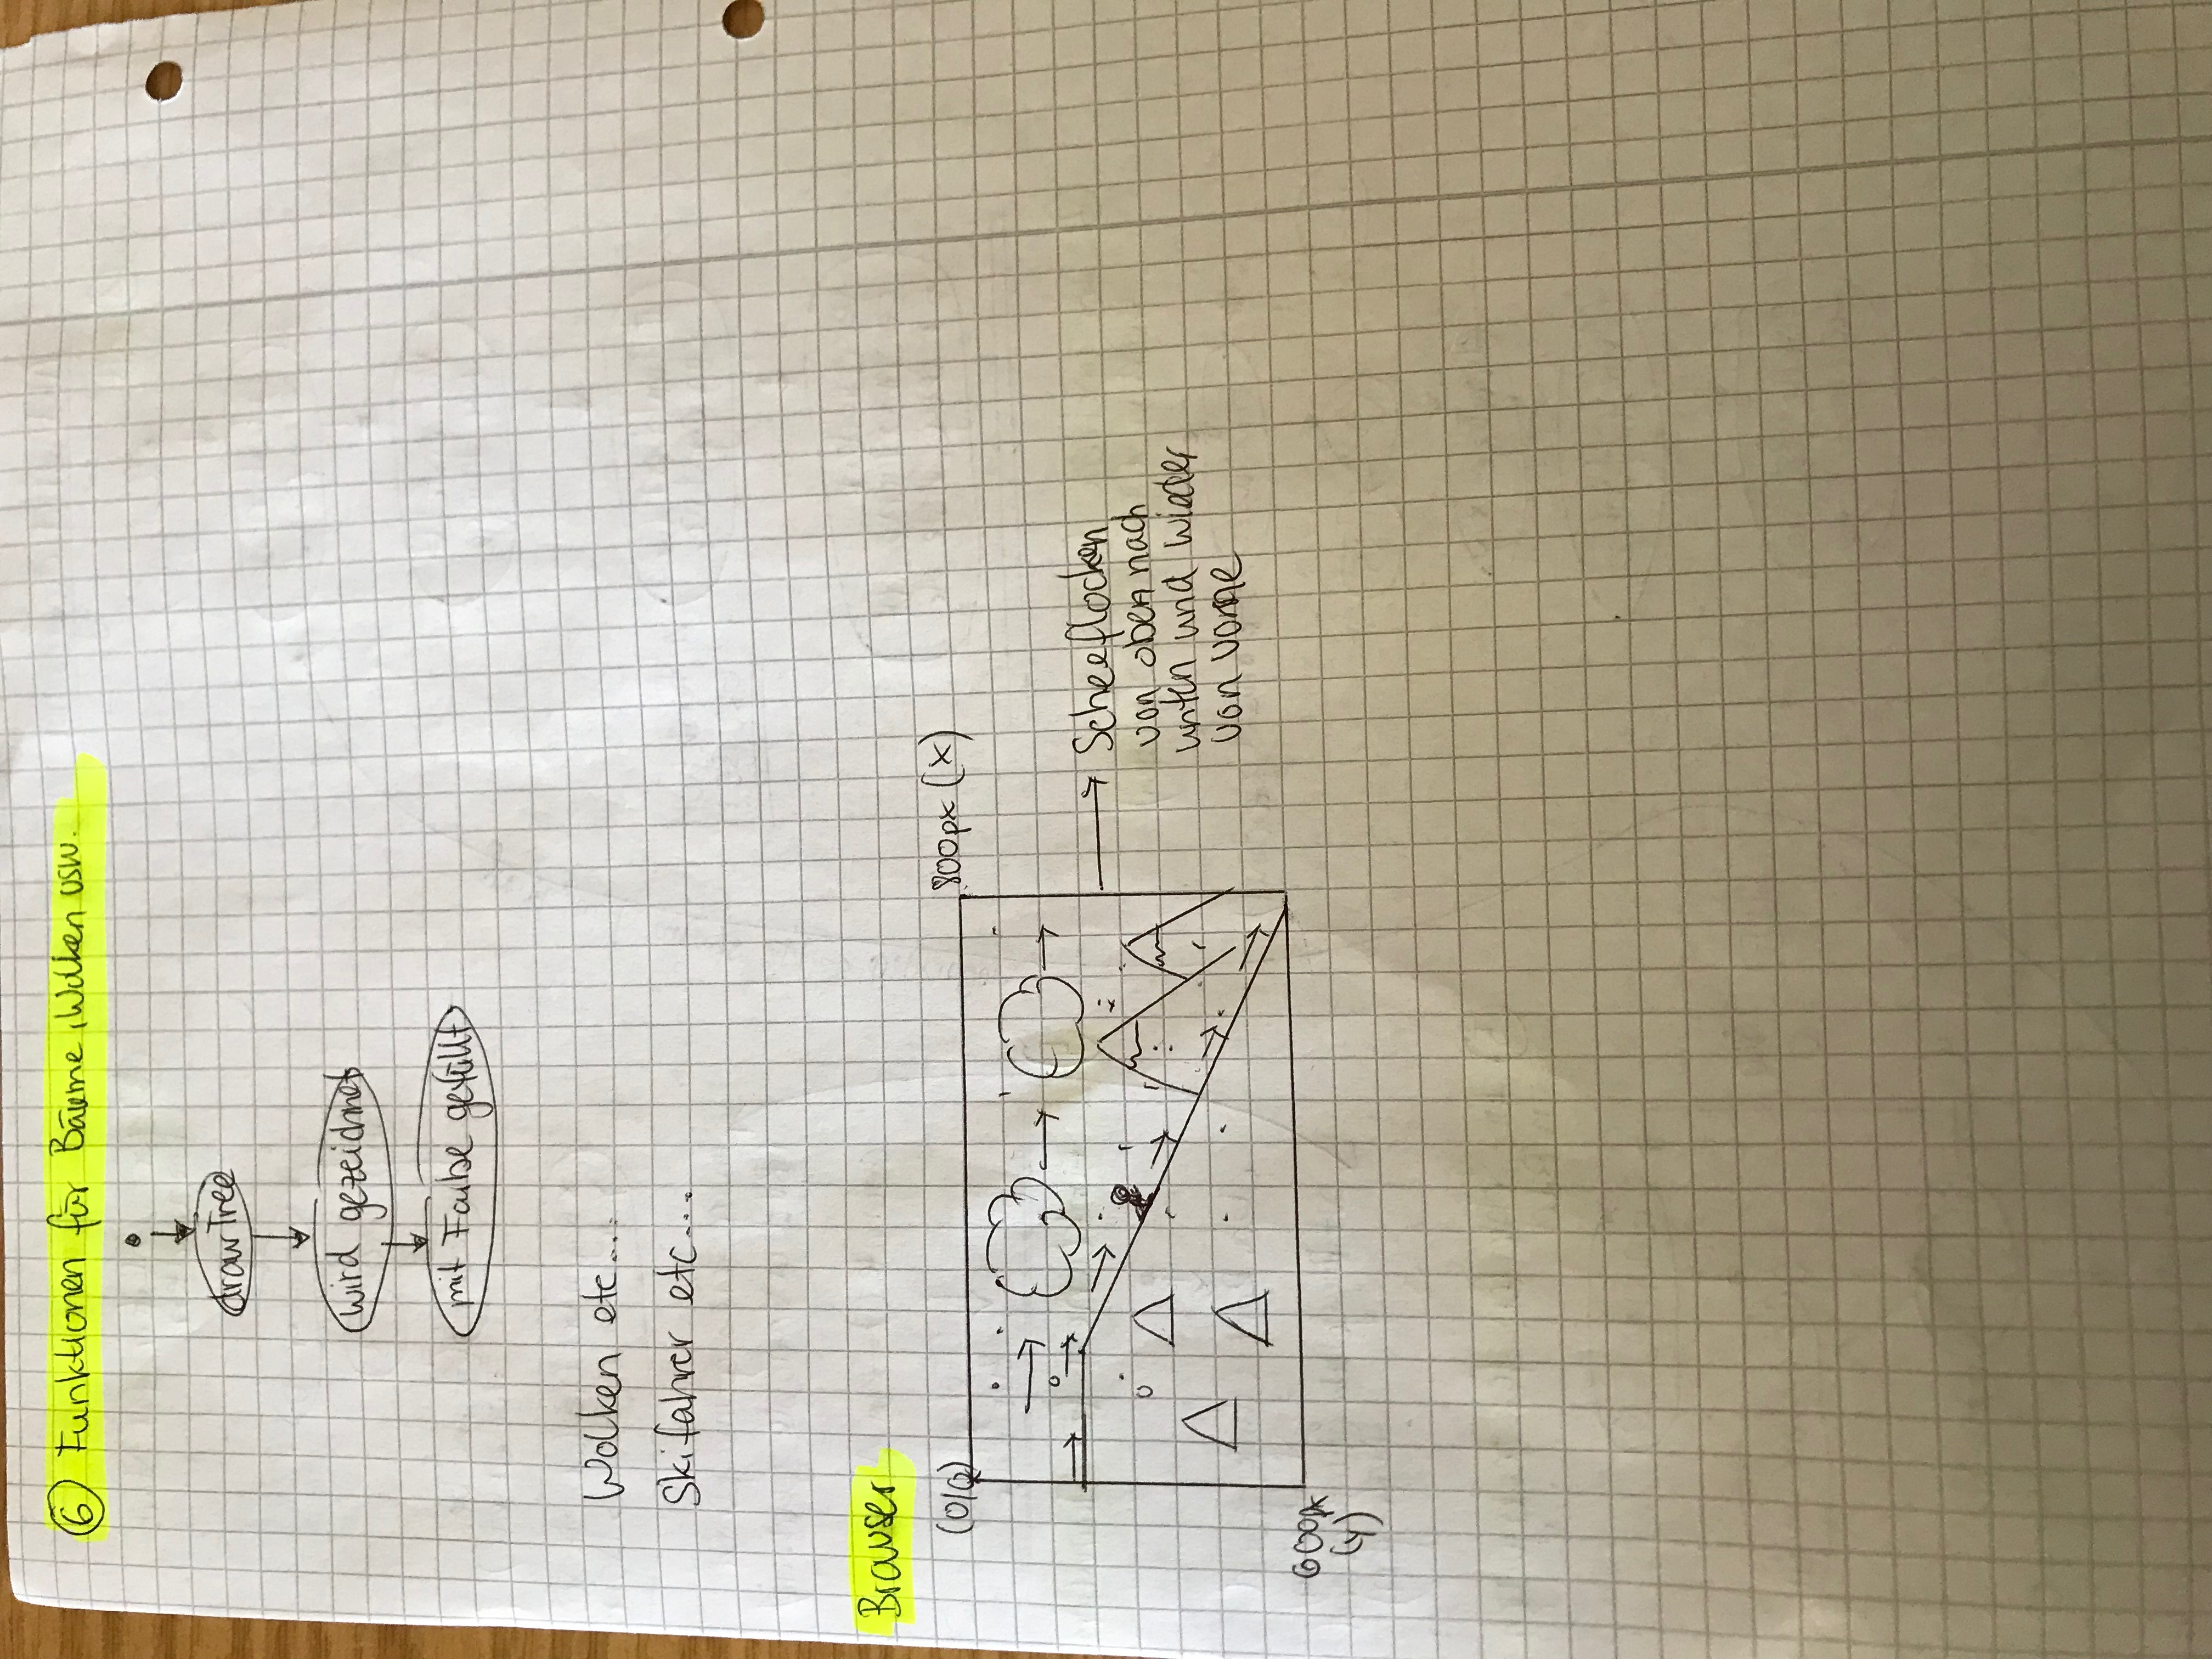 ⑥ Funktionen für Bäume, Wolken usw.
drawTree
wird gezeichnet
mit Farbe gefüllt
Wolken etc....
Skifahrer etc....
Browser
(0/0)
800px (x)
Scheeflocken
von oben nach
unten und wieder
von vorne
600px
(y)